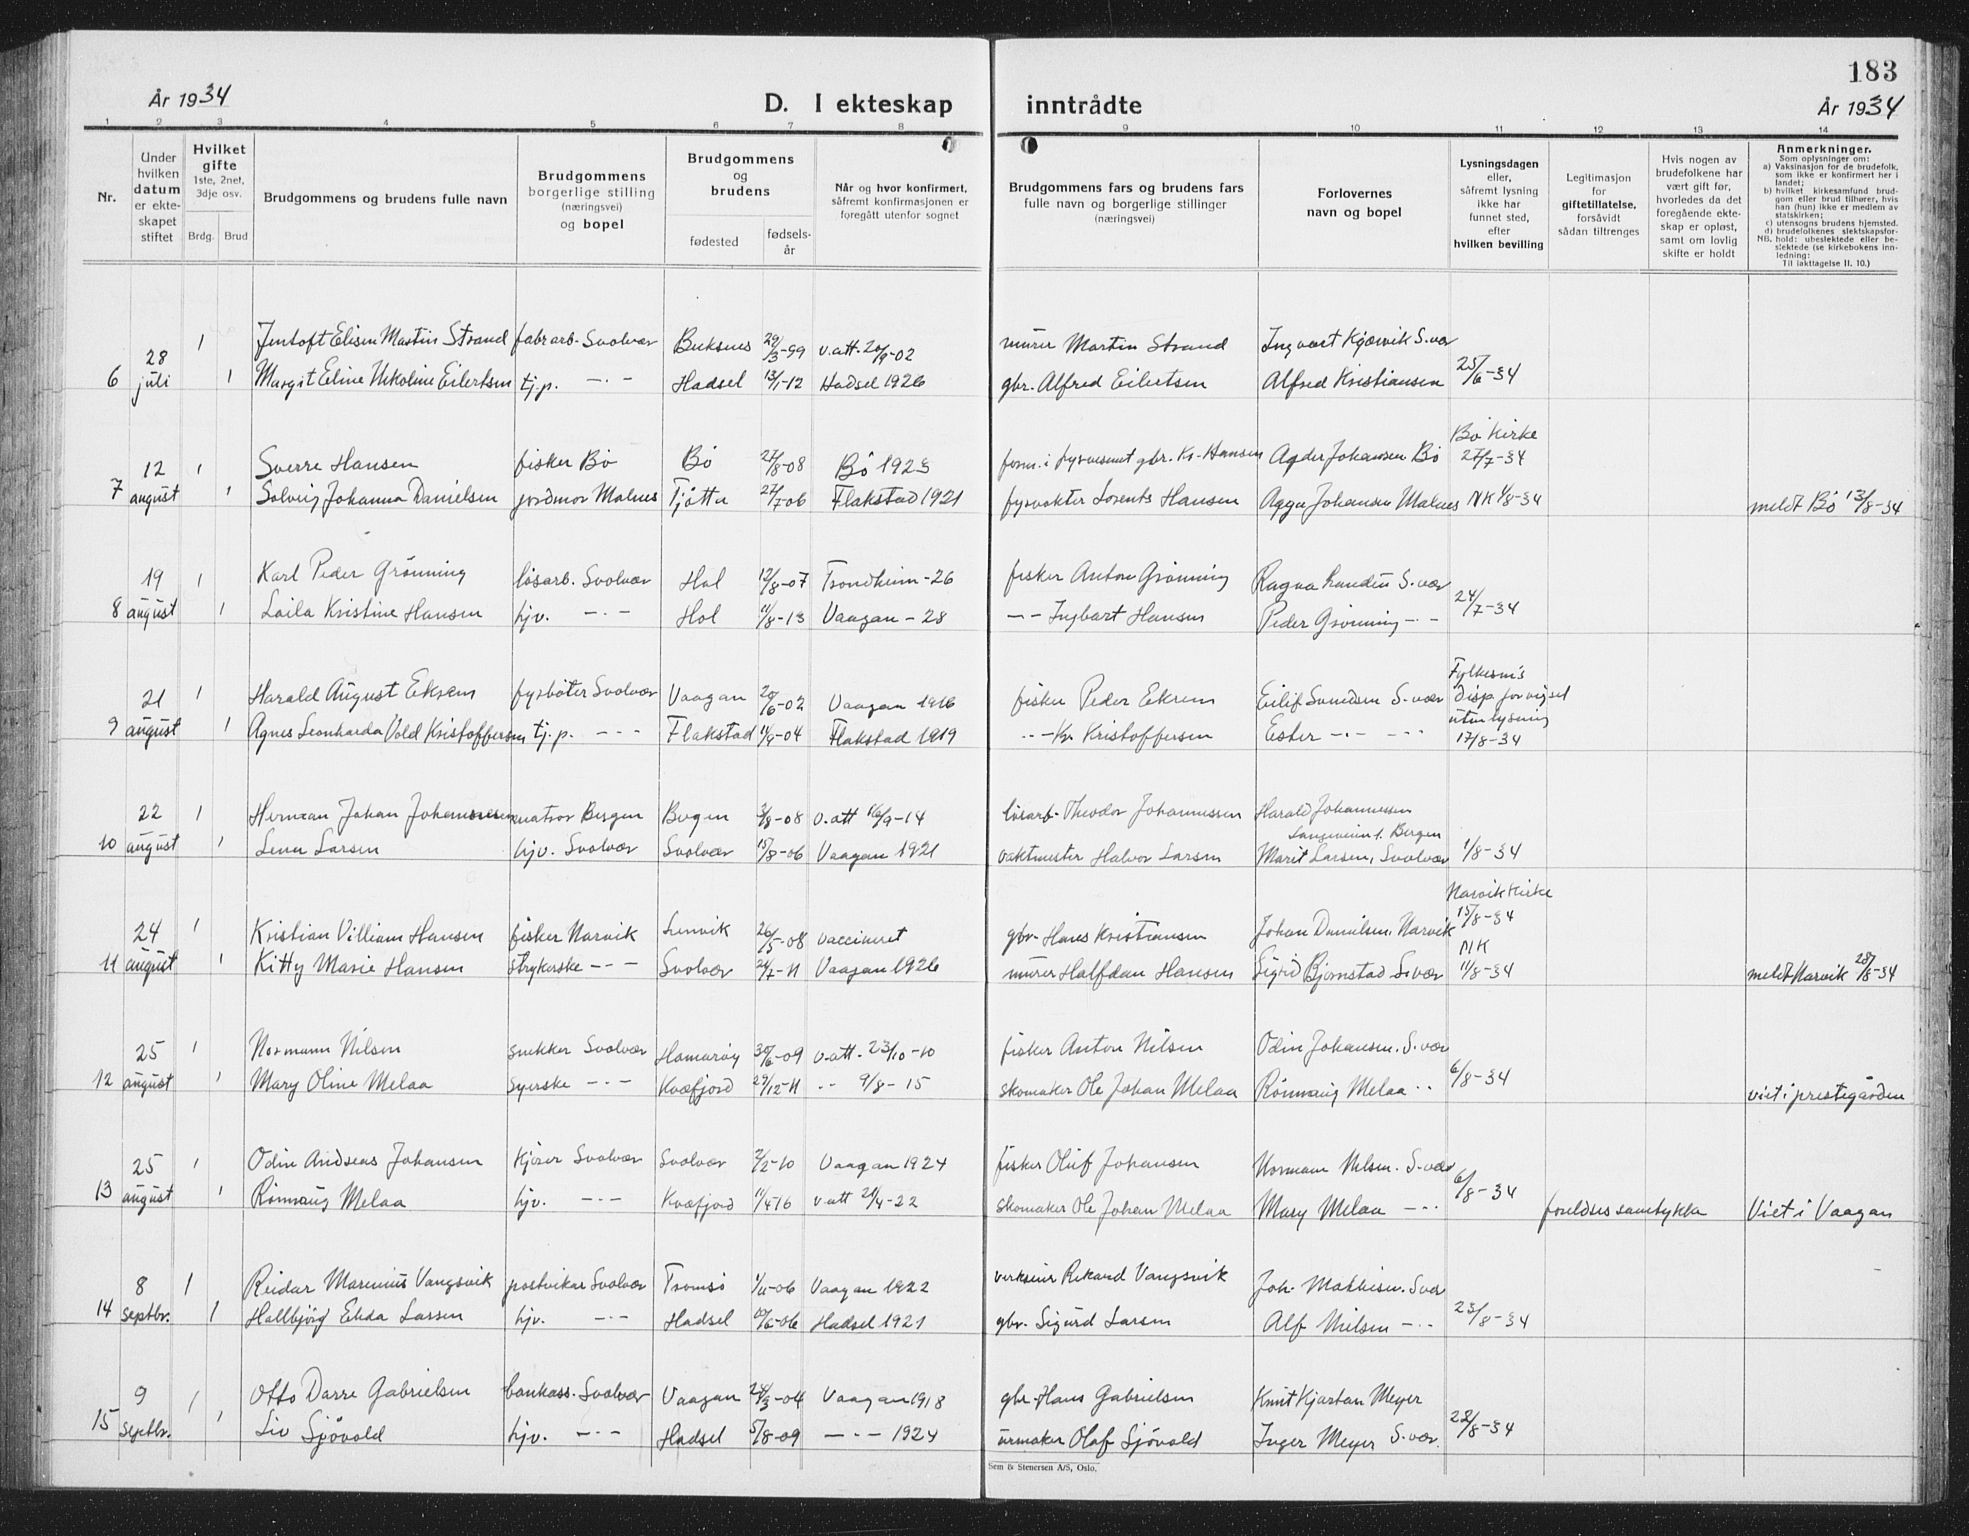 183
År 1934
D. I ekteskap inntrådte
År 1934
1 2 3 3 4 5 6 7 8 9 10 11 12 13 14
Nr.
Under hvilken datum er ekteskapet stiftet
Hvilket gifte
1ste, 2net, 3dje osv.
Brdg. Brud
Brudgommens og brudens fulle navn
Brudgommens borgerlige stilling (næringsvei) og bopel
Brudgommens og brudens
fødested
fødselsår
Når og hvor konfirmert, såfremt konfirmasjonen er foregått utenfor sognet
Brudgommens fars og brudens fars fulle navn og borgerlige stillinger (næringsvei)
Forlovernes navn og bopel
Lysningsdagen eller, såfremt lysning ikke har funnet sted, efter hvilken bevilling
Legitimasjon for giftetillatelse, forsåvidt sådan tiltrenges
Hvis nogen av brudefolkene har vært gift før, hvorledes da det foregående ekteskap er opløst, samt om lovlig skifte er holdt
Anmerkninger.
Som oplysninger om:
a) Vaksinasjon for de brudefolk, som ikke er konfirmert her i landet;
b) hvilket kirkesamfund brudgom eller brud tilhører, hvis han (hun) ikke er medlem av statskirken;
c) utensogns brudens hjemsted.
d) brudefolkenes slektskapsforhold: ubeslektede eller beslektede (se kirkebokens innledning:
NB.
Til iakttagelse II. 10.)
28 1 Jentoft Elisen Martin Strand fabrarb. Svolvær Buksnes 29/3-99 v.att. 20/9-02 murer Martin Strand Ingvart Kjærvik S.vær
6 juli 1 Margit Eline Nikoline Eilertsen tj.p. -·- Hadsel 13/1-12 Hadsel 1926 gbr. Alfred Eilertsen Alfred Kristiansen 25/6-34
12 1 Sverre Hansen fisker Bø Bø 27/8-08 Bø 1923 form. i fyrvesenet gbr. Kr. Hansen Agder Johansen Bø Bø Kirke 27/7-34
7 august 1 Solveig Johanna Danielsen jordmor Malnes Tjøtta 27/7-06 Flakstad 1921 fyrvokter Lorents Hansen Johansen Malnes NK 1/8-34 meldt Bø 13/8-34
19 1 Karl Peder Grønning løsarb. Svolvær Hol 12/8-07 Trondheim-26 fisker Anton Grønning Ragna S.vær
8 august 1 Laila Kristine Hansen hjv. -·- Hol 11/8-13 Vaagan-28 -- Ingbart Hansen Peder Grønning -·- 24/7-34
21 1 Harald August Ekrem fyrbøter Svolvær Vaagan 20/6-02 Vaagan 1916 fisker Peder Ekrem Eilif Svendsen S.vær Fylkesm's disp. for vigsel
9 august 1 Agnes Leonharda Vold Kristoffersen tj.p. --- Flakstad 11/9-04 Flakstad 1919 -- Kr. Kristoffersen Ester -·- --- uten lysning 17/8-34
22 1 Herman Johan Johannessen matros Bergen Bergen 3/8-08 v.att 16/9-14 løsarb. Theodor Johannessen Harald Johannessen Bergen
10 august 1 Lena Larsen hjv. Svolvær Svolvær 15/8-06 Vaagan 1921 vaktmester Halvor Larsen Marit Larsen, Svolvær 1/8-34
24 1 Kristian Villiam Hansen fisker Narvik Lenvik 26/5-08 vaccineret gbr. Hans Kristiansen Johan Danielsen, Narvik Narvik Kirke 15/8-34
11 august 1 Kitty Marie Hansen strykerske --- Svolvær 24/7-11 Vaagan 1926 murer Halfdan Hansen Sigrid Bjørnstad S.vær NK 11/8-34 meldt Narvik 28/8-34
25 1 Normann Nilsen snekker Svolvær Hamarøy 30/6-09 v.att. 23/10-10 fisker Anton Nilsen Odin Johansen. S.vær
12 august 1 Mary Oline Melaa syerske -·- Kvæfjord 29/12-11 -- 9/8-15 skomaker Ole Johan Melaa Rønnaug Melaa -- 6/8-34 viet i prestegården
25 1 Odin Andreas Johansen kjører Svolvær Svolvær 2/2-10 Vaagan 1924 fisker Oluf Johansen Normann Nilsen. S.vær
13 august 1 Rønnaug Melaa hjv. -·- Kvæfjord 11/4-16 v.att 21/4-22 skomaker Ole Johan Melaa Mary Melaa -·- 6/8-34 foreldres samtykke Viet i Vaagan
8 1 Reidar Marenius Vangsvik postvikar Svolvær Tromsø 1/11-06 Vaagan 1922 verkseier Rikard Vangsvik Joh. Mathisen. S.vær
14 septbr. 1 Hallbjørg Elida Larsen hjv. -·- Hadsel 10/6-06 Hadsel 1921 gbr. Sigurd Larsen Alf Nielsen -·- 23/8-34
9 1 Otto Darre Gabrielsen bankass. Svolvær Vaagan 24/3-04 Vaagan 1918 gbr. Hans Gabrielsen Knut Kjartan Meyer
15 septbr. 1 Liv Sjøvold hjv. -·- Hadsel 5/8-09 -·- 1924 urmaker Olaf Sjøvold Inger Meyer S.vær. 22/8-34
Sem & Stenersen A/S, Oslo.